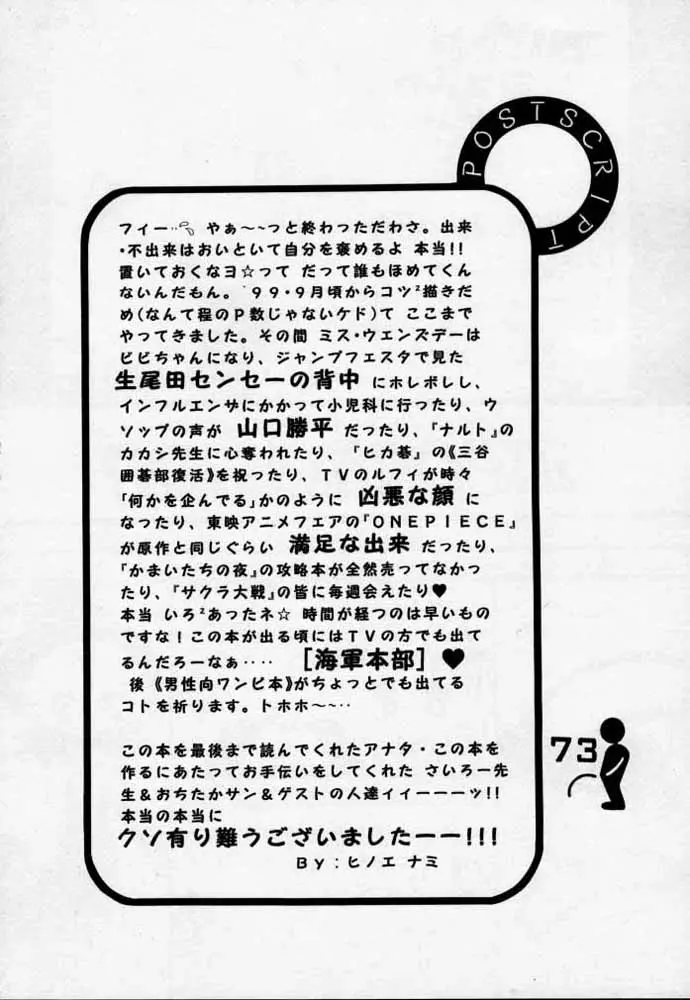 POSTSCRIPT
フィー‥ やぁ～～っと終わっただわさ。出来
・不出来はおいといて自分を褒めるよ 本当!!
置いておくなヨ☆って だって誰もほめてくん
ないんだもん。'99・9月頃からコツ²描きだ
め(なんて程のP数じゃないケド)て ここまで
やってきました。その間 ミス・ウェンズデーは
ビビちゃんになり、ジャンプフェスタで見た
生尾田センセーの背中 にホレボレし、
インフルエンサにかかって小児科に行ったり、ウ
ソップの声が 山口勝平 だったり、『ナルト』の
カカシ先生に心奪われたり、『ヒカ碁』の《三谷
囲碁部復活》を祝ったり、TVのルフィが時々
「何かを企んでる」かのように 凶悪な顔 に
なったり、東映アニメフェアの『ONEPIECE』
が原作と同じぐらい 満足な出来 だったり、
『かまいたちの夜』の攻略本が全然売ってなかっ
たり、『サクラ大戦』の皆に毎週会えたり♥
本当 いろ²あったネ☆ 時間が経つのは早いもの
ですな！この本が出る頃にはTVの方でも出て
るんだろーなぁ‥‥ [海軍本部] ♥
後《男性向ワンピ本》がちょっとでも出てる
コトを祈ります。トホホ～～‥
この本を最後まで読んでくれたアナタ・この本を
作るにあたってお手伝いをしてくれた さいろー先
生＆おちたかサン＆ゲストの人達ィィーーーッ!!
本当の本当に
クソ有り難うございましたーー!!!
By：ヒノエ ナミ
73